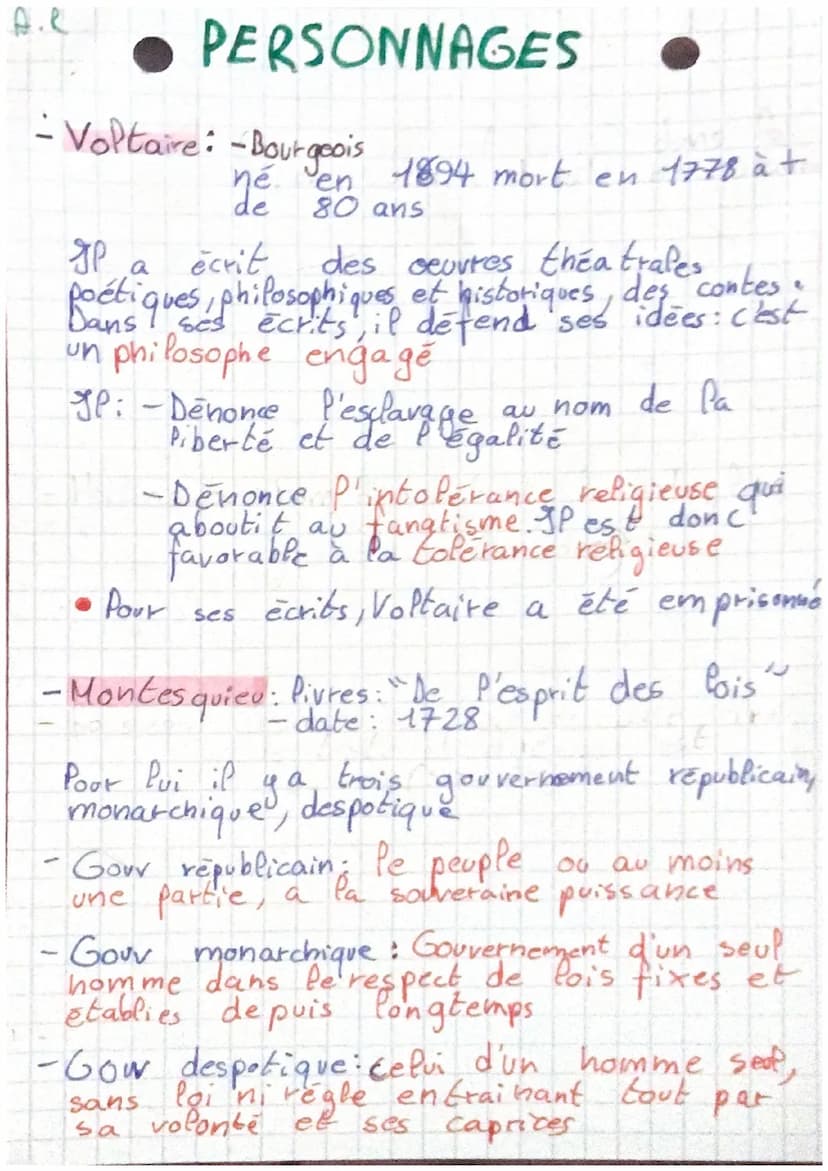 A.l
PERSONNAGES
- Voltaire: - Bourgeois
né en 1894 mort en 1778 à +
de 80 ans
Il a écrit des oeuvres théatrales
poétiques, philosophiques et historiques, des contes.
Dans ses écrits, il défend ses idées: c'est
un philosophe engagé
Il: - Dénonce l'esclavage au nom de la
liberté et de l'égalité
- Dénonce l'intolérance religieuse qui
aboutit au fanatisme. Il est donc
favorable à la tolérance religieuse
• Pour ses écrits, Voltaire a été emprisonné
- Montesquieu: livres: "De l'esprit des lois"
- date: 1728
Pour lui il y a trois gouvernement républicain,
monarchique, despotique
- Gouv républicain: le peuple ou au moins
une partie, a la souveraine puissance
- Gouv monarchique: Gouvernement d'un seul
homme dans le respect de lois fixes et
établies depuis longtemps
- Gouv despotique: celui d'un homme seul,
sans loi ni règle entrainant tout par
sa volonté et ses caprices